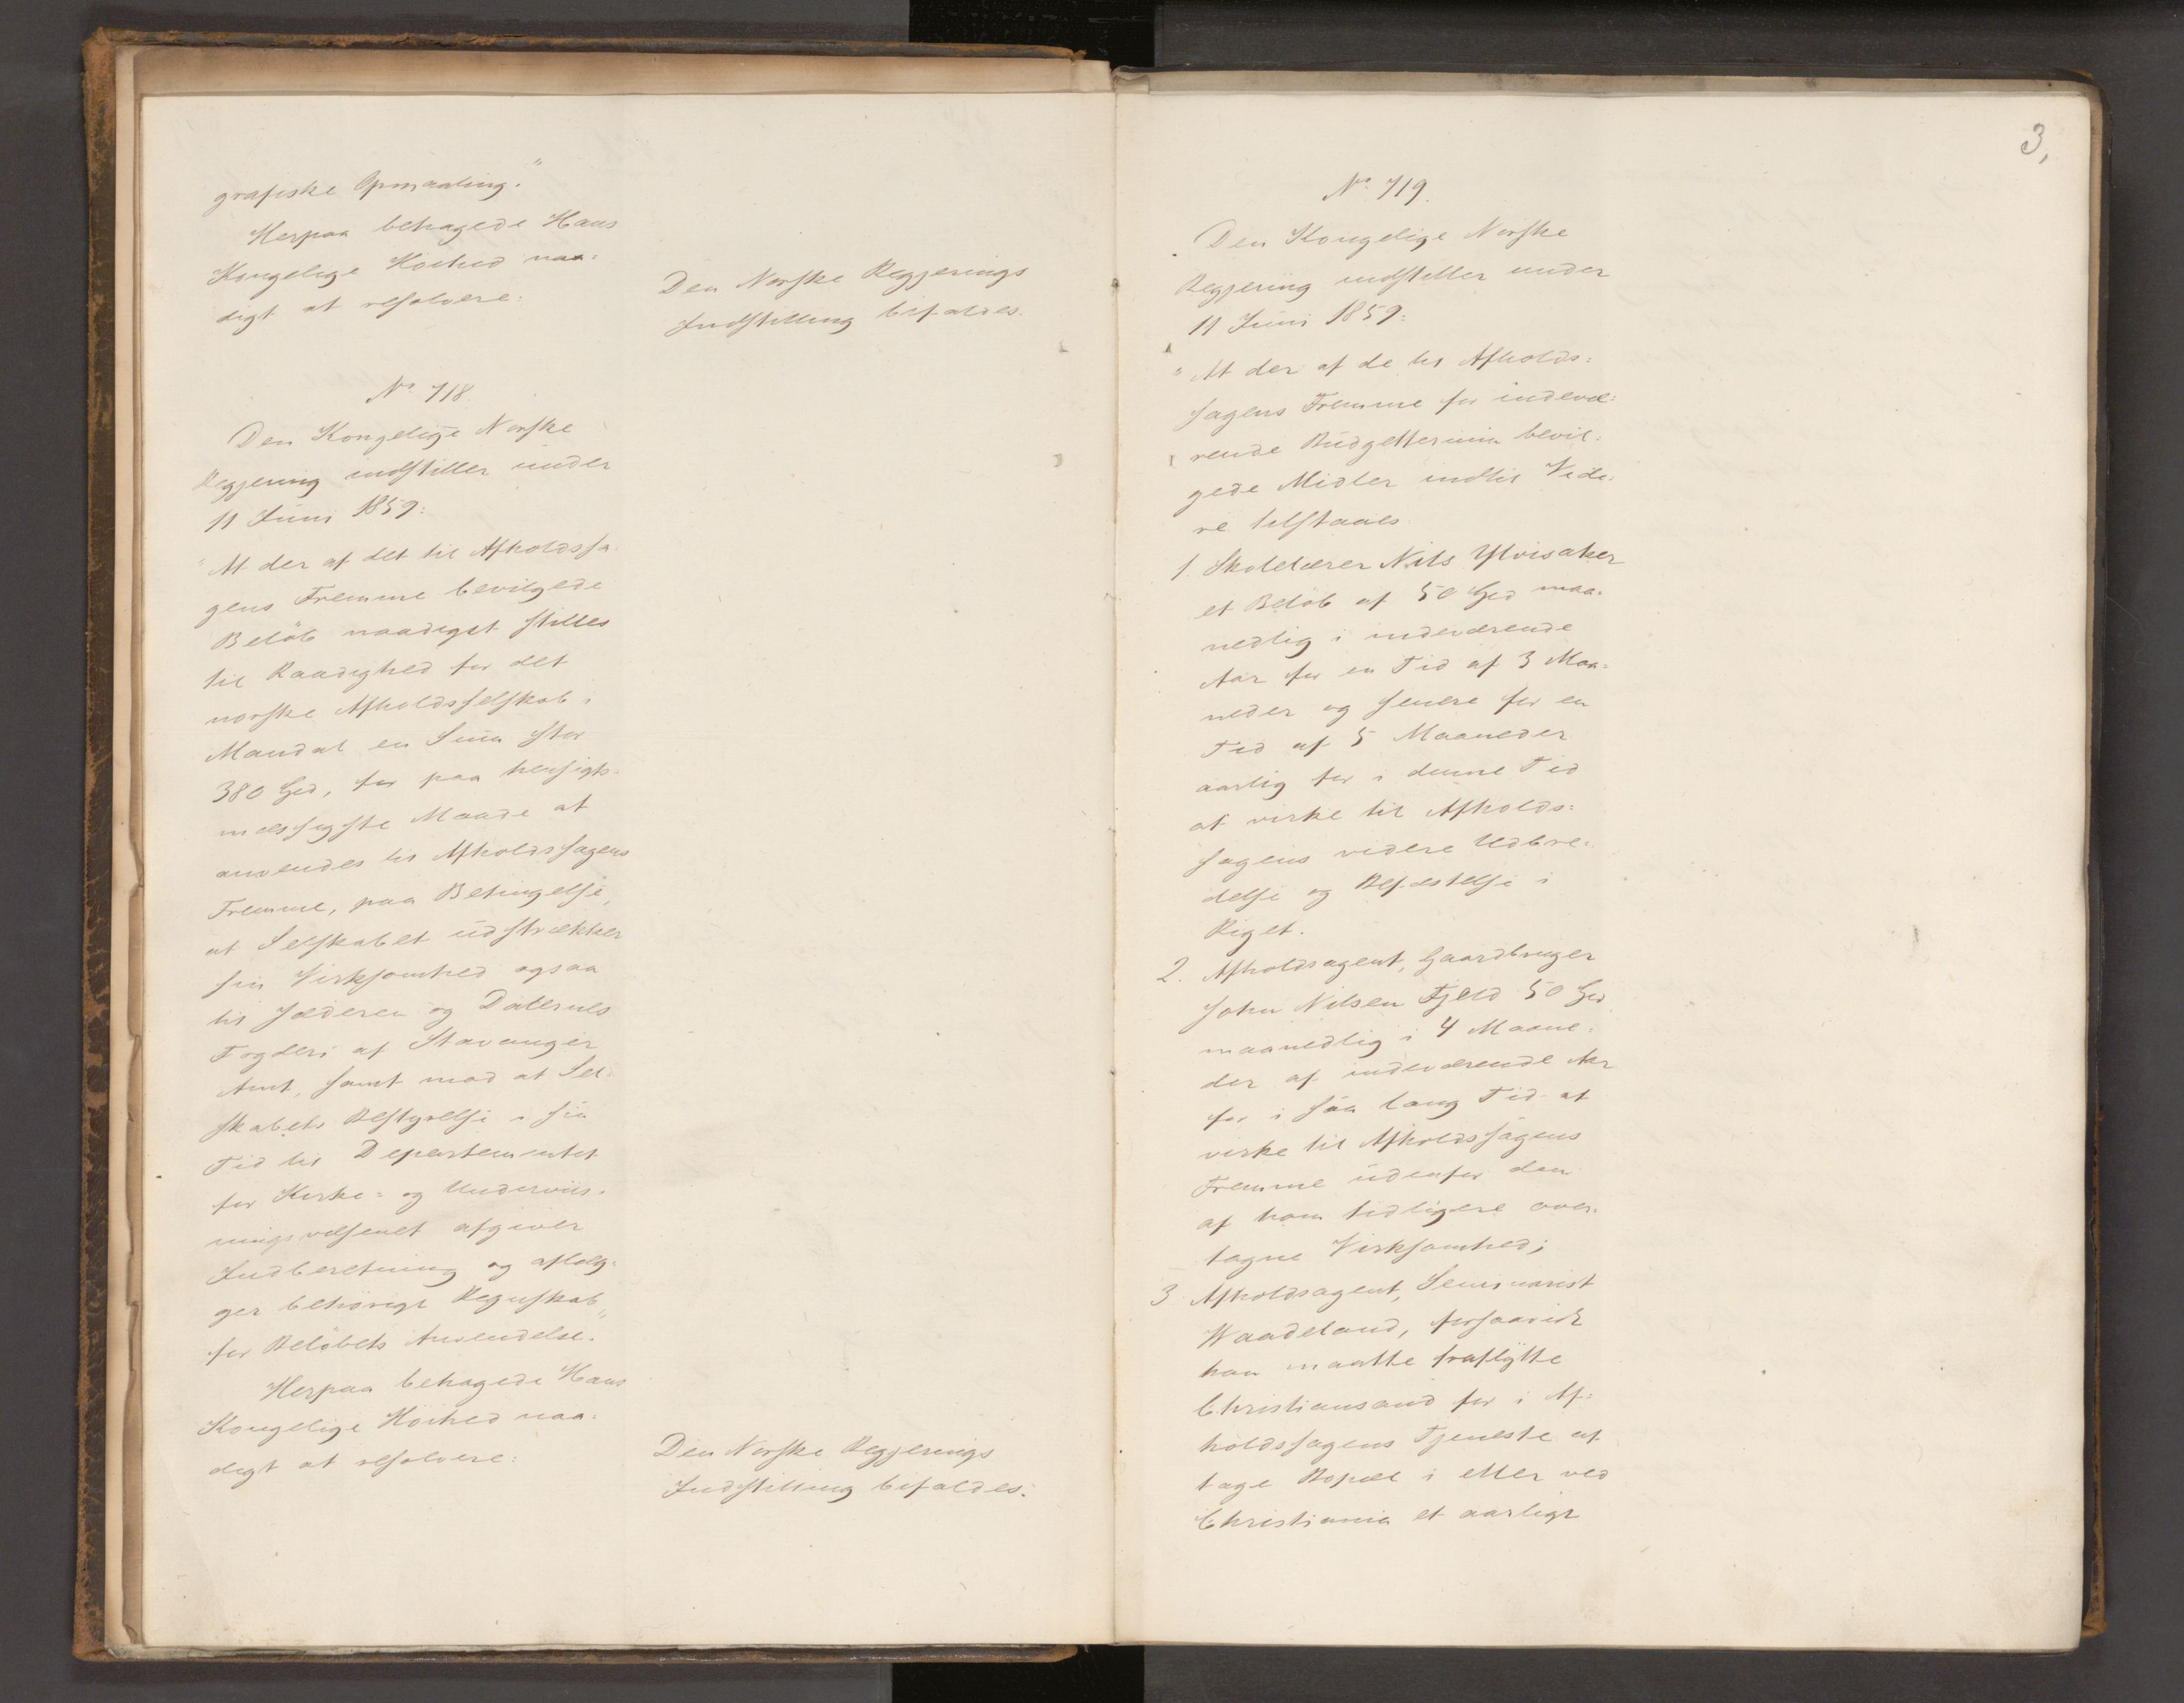 grafiske Opmaaling."
Herpaa behagede Hans
Kongelige Höihed naa-
digt at resolvere:
Den Norske Regjerings
Indstilling bifaldes.
No 718.
Den Kongelige Norske
Regjering indstiller under
11 Juni 1859:
"At der af det til Afholdssa-
gens Fremme bevilgede
Belöb naadigst stilles
til Raadighed for det
norske Afholdsselskab i
Mandal en Sum stor
380 Spd, for paa hensigts-
mæssigste Maade at
anvendes til Afholdssagens
Fremme, paa Betingelse,
at Selskabet udstrækker
sin Virksomhed ogsaa
til Jæderen og Dalernes
Fogderi af Stavanger
Amt, samt mod at Sel-
skabets Bestyrelse i sin
Tid til Departementet
for Kirke- og Underviis-
ningsvæsenet afgiver
Indberetning og aflæg-
ger behörigt Regnskab
for Belöbets Anvendelse."
Herpaa behagede Hans
Kongelige Höihed naa-
digt at resolvere:
Den Norske Regjerings
Indstilling bifaldes.
3,
No 719.
Den Kongelige Norske
Regjering indstiller under
11 Juni 1859:
"At der af de til Afholds-
sagens Fremme for indevæ-
rende Budgettermin bevil-
gede Midler indtil Vide-
re tilstaaes
1. Skolelærer Nils Ylvisaker
et Belöb af 50 Spd maa-
nedlig i indeværende
Aar for en Tid af 3 Maa-
neder og senere for en
Tid af 5 Maaneder
aarlig for i denne Tid
at virke til Afholds-
sagens videre Udbre-
delse og Befæstelse i
Riget.
2. Afholdsagent, Gaardbruger
John Nilsen Fjeld 50 Spd
maanedlig i 4 Maane-
der af indeværende Aar
for i saa lang Tid at
virke til Afholdssagens
Fremme udenfor den
af ham tidligere over-
tagne Virksomhed;
3 Afholdsagent, Seminarist
Waadeland, forsaavidt
han maatte fraflytte
Christiansand for i Af-
holdssagens Tjeneste at
tage Bopæl i eller ved
Christiania et aarligt